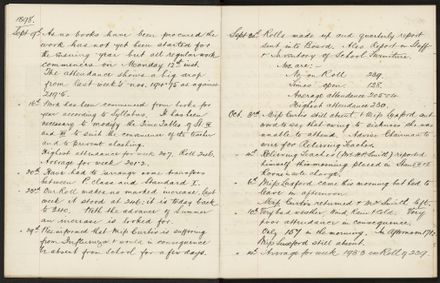 1898.
Sept 9th As no books have been procured the
work has not yet been started for
the ensuing year but all regular work
commences on Monday 12th inst.
The attendance shows a big drop
from last week's nos, 194.75 as against
219.5.
" 16th Work has been commenced from books for
year according to Syllabus. It has been
necessary to modify the Time Tables of St. II
and III to suit the convenience of the teacher
and to prevent clashing.
Highest attendance for week 227. Roll 246.
Average for week 201.2.
" 20th Have had to arrange some transfers
between P. class and Standard I.
" 23rd Our Roll makes no marked increase. Last
week it stood at 246; it is today back
to 240. With the advance of Summer
an increase is looked for.
" 29th Was informed that Miss Curtis is suffering
from Influenza & would in consequence
be absent from School for a few days.
Sept 30th Rolls made up and quarterly report
sent into Board. Also Report on Staff
& Inventory of School Furniture.
Nos. are:-
No. on Roll 239.
Times open 125.
Average attendance
Highest attendance 230.
Oct. 3rd Miss Curtis still absent & Miss Crawford sent
word to say that owing to sickness she was
unable to attend. Advise Chairman to
wire for Relieving Teacher.
" Relieving Teacher (Mr. McSmith) reported
himself this morning & placed in
Room to take charge.
" 6th Miss Crawford came this morning but had to
leave in afternoon.
" Miss Curtis returned & Mr. Smith left.
" 10th Very bad weather Wind, Rain & Cold. Very
poor attendance in consequence.
Only 157 in the morning. In afternoon 172.
Miss Crawford still absent.
" 14th Average for week 193.3 on Roll of 239